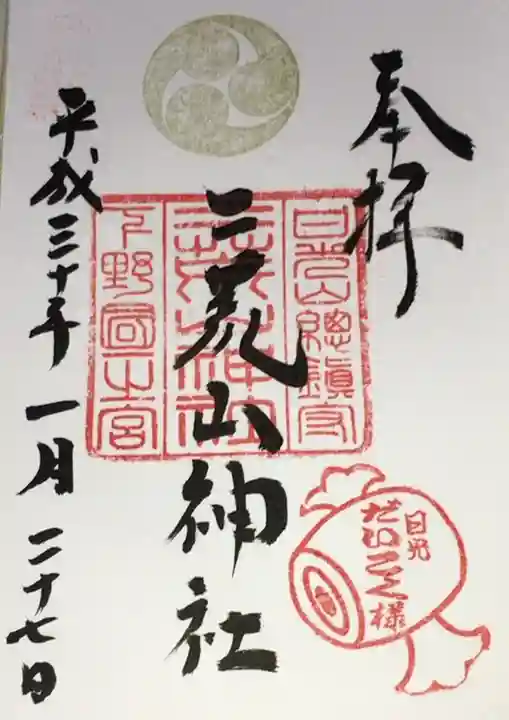 奉拝
日光山總鎮守
二荒山神社
二荒山神社
下野國一之宮
日光
だいこく様
平成三十年一月二十七日